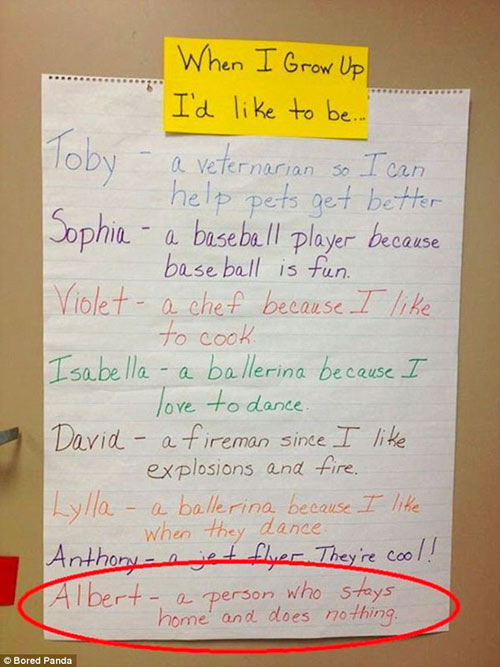 When I Grow Up
I'd like to be...
Toby - a veternarian so I can
help pets get better
Sophia - a baseball player because
baseball is fun.
Violet - a chef because I like
to cook
Isabella - a ballerina because I
love to dance.
David - a fireman since I like
explosions and fire.
Lylla - a ballerina because I like
when they dance
Anthony - a jet flyer. They're cool!
Albert - a person who stays
home and does nothing.
© Bored Panda